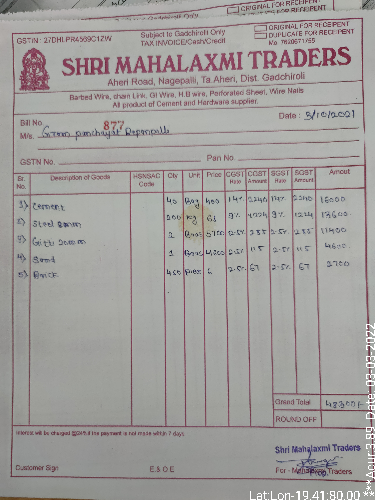 ORIGINAL FOR RECIPENT
GSTIN : 27DHLPR4569C1ZW
Subject to Gadchiroli Only
TAX INVOICE/Cash/Credit
ORIGINAL FOR RECEIPENT
DUPLICATE FOR RECEIPENT
SHRI MAHALAXMI TRADERS
Aheri Road, Nagepalli, Ta Aheri, Dist. Gadchiroli
Barbed Wire, chain Link, GI Wire, H.B wire, Perforated Sheet, Wire Nails
All product of Cement and Hardware supplier.
Bill No. 877
Date : 3/10/2021
M/s. Gram panchayat Repanpalli
GSTN No.
Pan No.
Sr. No. Description of Goods HSNSAC Code Qty Unit Price CGST Rate CGST Amount SGST Rate SGST Amount Amount
1) Cement 40 Bag 400 14% 2240 14% 2240 16000
2) Steel 8mm 200 kg 68 9% 1224 9% 1224 13600
3) Gitti 20mm 2 Brass 5700 2.5% 285 2.5% 285 11400
4) Sand 1 Brass 4600 2.5% 115 2.5% 115 4600
5) Brick 450 Piece 6 2.5% 67 2.5% 67 2700
Grand Total 48300/-
ROUND OFF
Interest will be charged @24% if the payment is not made within 7 days
Shri Mahalaxmi Traders
Customer Sign
E.& O.E
For - Mahalaxmi Traders
Lat:Lon-19.41:80.00
***Acur:3.89 Date: 03-03-2022